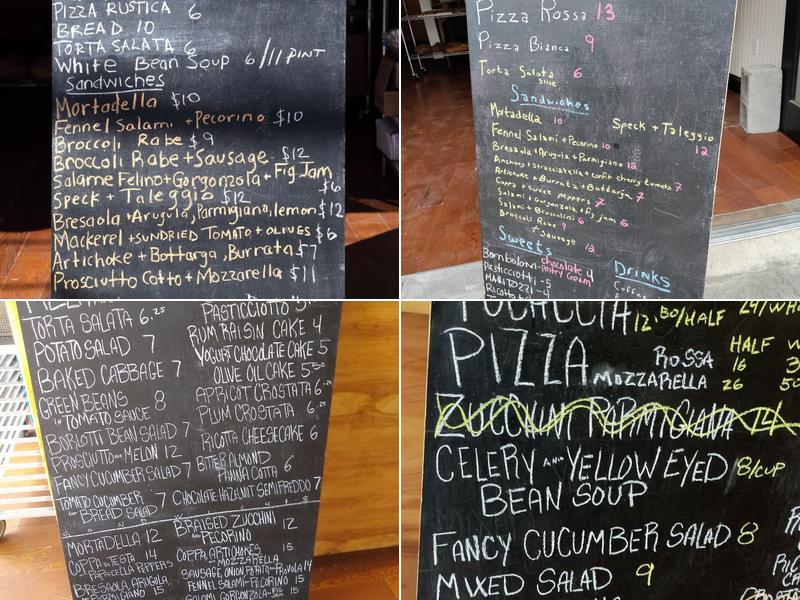 PIZZA RUSTICA 6
BREAD 10
TORTA SALATA 6
White Bean Soup 6/11 PINT
Sandwiches
Mortadella $10
Fennel Salami + Pecorino $10
Broccoli Rabe $9
Broccoli Rabe + Sausage $12
Salame Felino + Gorgonzola + Fig Jam $6
Speck + Taleggio $12
Bresaola + Arugula, Parmigiana, lemon $12
Mackerel + SUNDRIED TOMATO + OLIVES $6
Artichoke + Bottarga, Burrata $7
Prosciutto Cotto + Mozzarella $11
Pizza Rossa 13
Pizza Bianca 9
Torta Salata 6
slice
Sandwiches
Mortadella 10
Speck + Taleggio 12
Fennel Salami + Pecorino 10
Bresaola + Arugula + Parmigiano 12
Anchovy + Stracciatella + confit cherry tomato 7
Artichoke + Burrata + Bottarga 7
Coppa + sweet peppers 7
Salami + Gorgonzola + fig jam 6
Salami + Broccolini 6
Broccoli Rabe 9
+ Sausage 12
Sweets
Bomboloni - chocolate 4
Pastry Cream
Pasticciotti - 5
MARITOZZI - 4
Ricotta
Drinks
Coffee
TORTA SALATA 6.25
POTATO SALAD 7
BAKED CABBAGE 7
GREEN BEANS 8
IN TOMATO SAUCE
BORLOTTI BEAN SALAD 7
PROSCIUTTO AND MELON 12
FANCY CUCUMBER SALAD 7
TOMATO CUCUMBER 7
BREAD SALAD
PASTICCIOTTI
RUM RAISIN CAKE 4
YOGURT CHOCOLATE CAKE 5
OLIVE OIL CAKE 5.50
APRICOT CROSTATA 6.25
PLUM CROSTATA 6.25
RICOTTA CHEESECAKE 6
BITTER ALMOND
PANNA COTTA 6
CHOCOLATE HAZELNUT SEMIFREDDO 7
MORTADELLA 12
COPPA DI TESTA 14
PEPPERS
BRESAOLA, ARUGULA,
PARMIGIANO 15
BRAISED ZUCCHINI 12
PECORINO
COPPA, ARTICHOKES 15
MOZZARELLA
SAUSAGE, ONION, POTATO, PROVOLA 14
FENNEL SALAMI - PECORINO 15
SALAMI, GORGONZOLA 15
FOCACCIA 12.50/HALF 24/WH
PIZZA
HALF W
ROSSA 16 3
MOZZARELLA 26 50
ZUCCHINI PARMIGIANA 14
CELERY AND YELLOW EYED 8/CUP
BEAN SOUP
FANCY CUCUMBER SALAD 8
MIXED SALAD 9